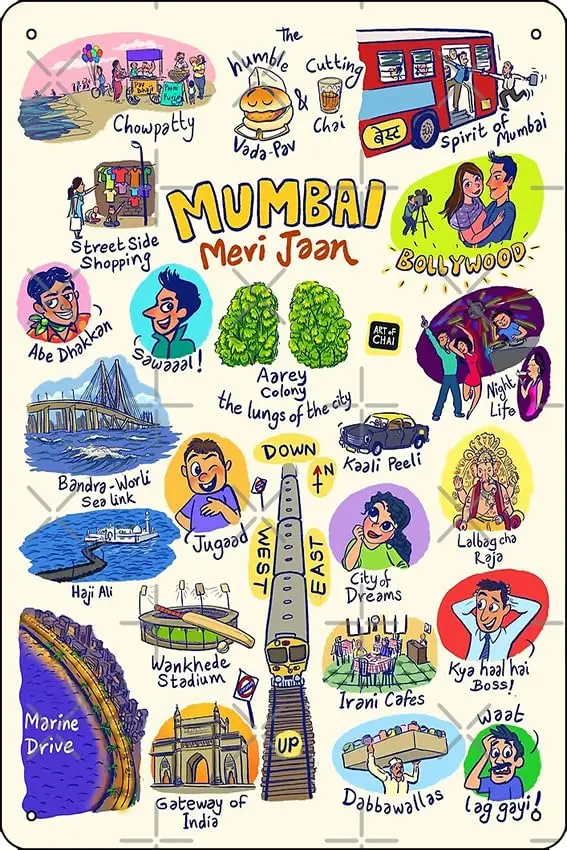 The
humble
Vada-Pav
&
Cutting
Chai
Chowpatty
Pav
Bhaji
Pani
Puri
बेस्ट
Spirit of
Mumbai
Street Side
Shopping
MUMBAI
Meri Jaan
BOLLYWOOD
Abe Dhakkan
Sawaaal!
Aarey
Colony
the lungs of the city
ART OF
CHAI
Night
Life
Bandra-Worli
Sea link
Jugaad
DOWN
N
WEST
EAST
UP
Kaali Peeli
Lalbag cha
Raja
Haji Ali
City of
Dreams
Wankhede
Stadium
Irani Cafes
Kya haal hai
Boss!
Marine
Drive
Gateway of
India
Dabbawallas
Waat
lag gayi!